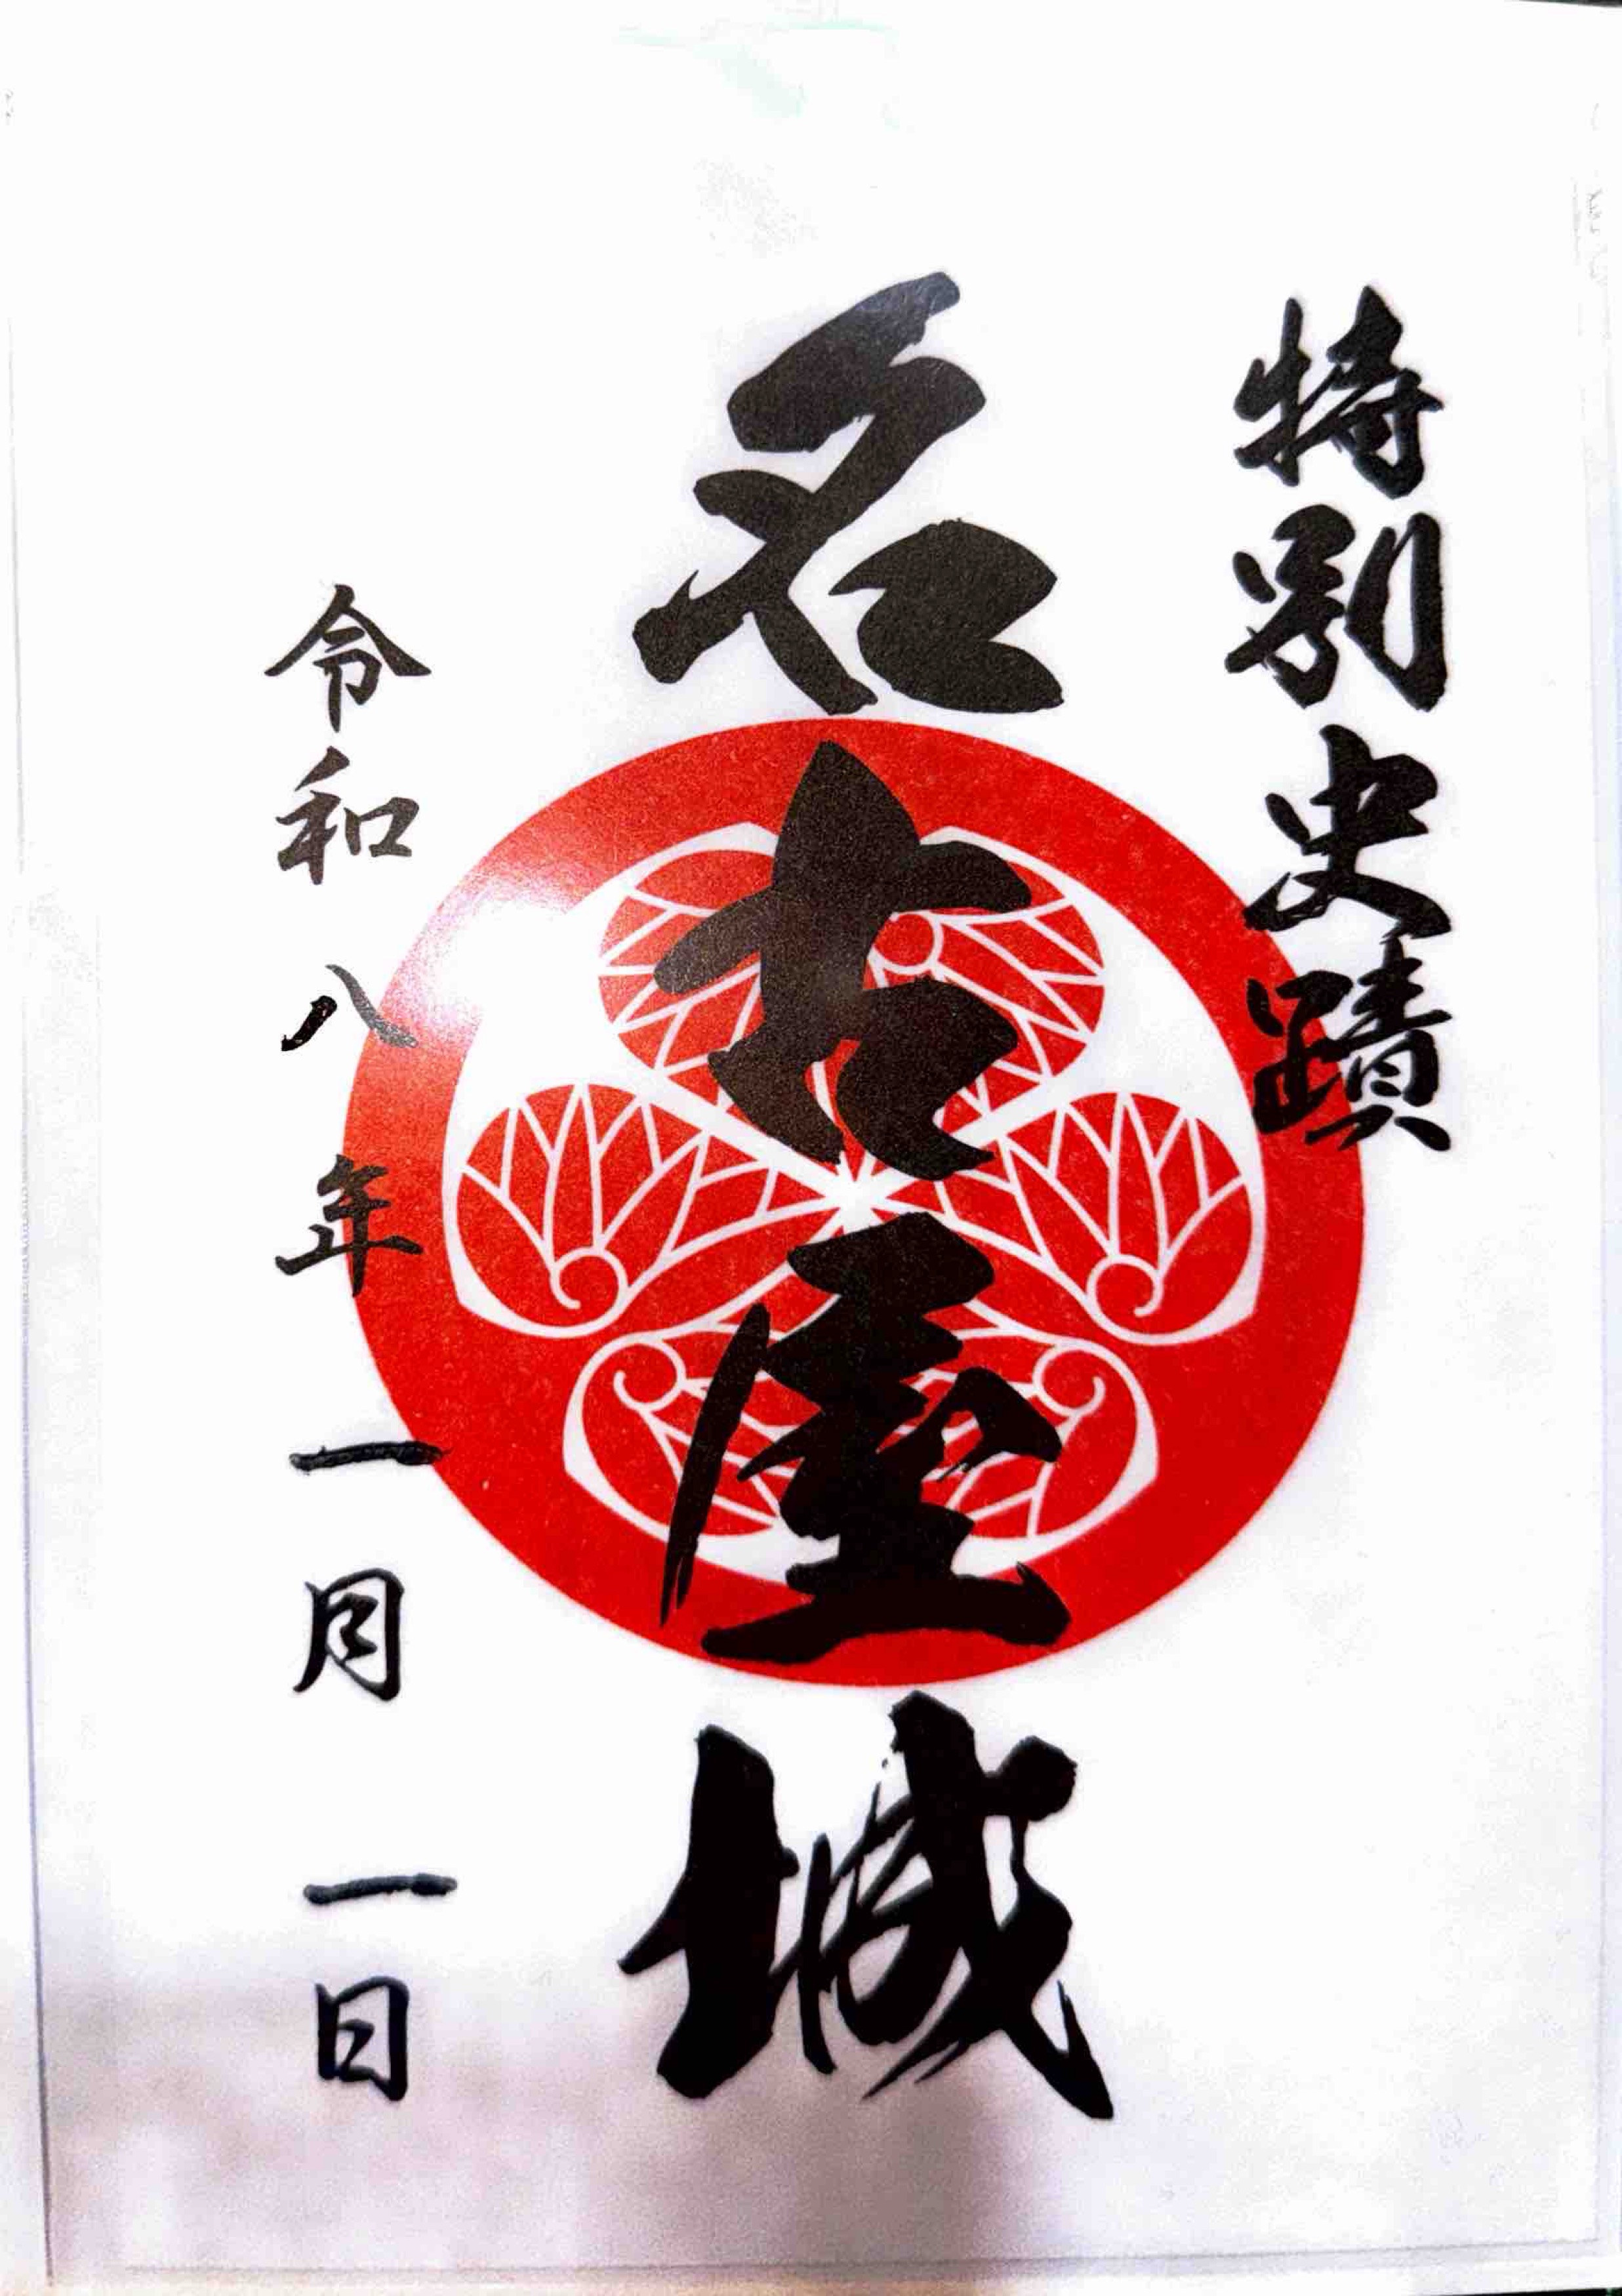 特別史蹟
名古屋城
令和八年一月一日